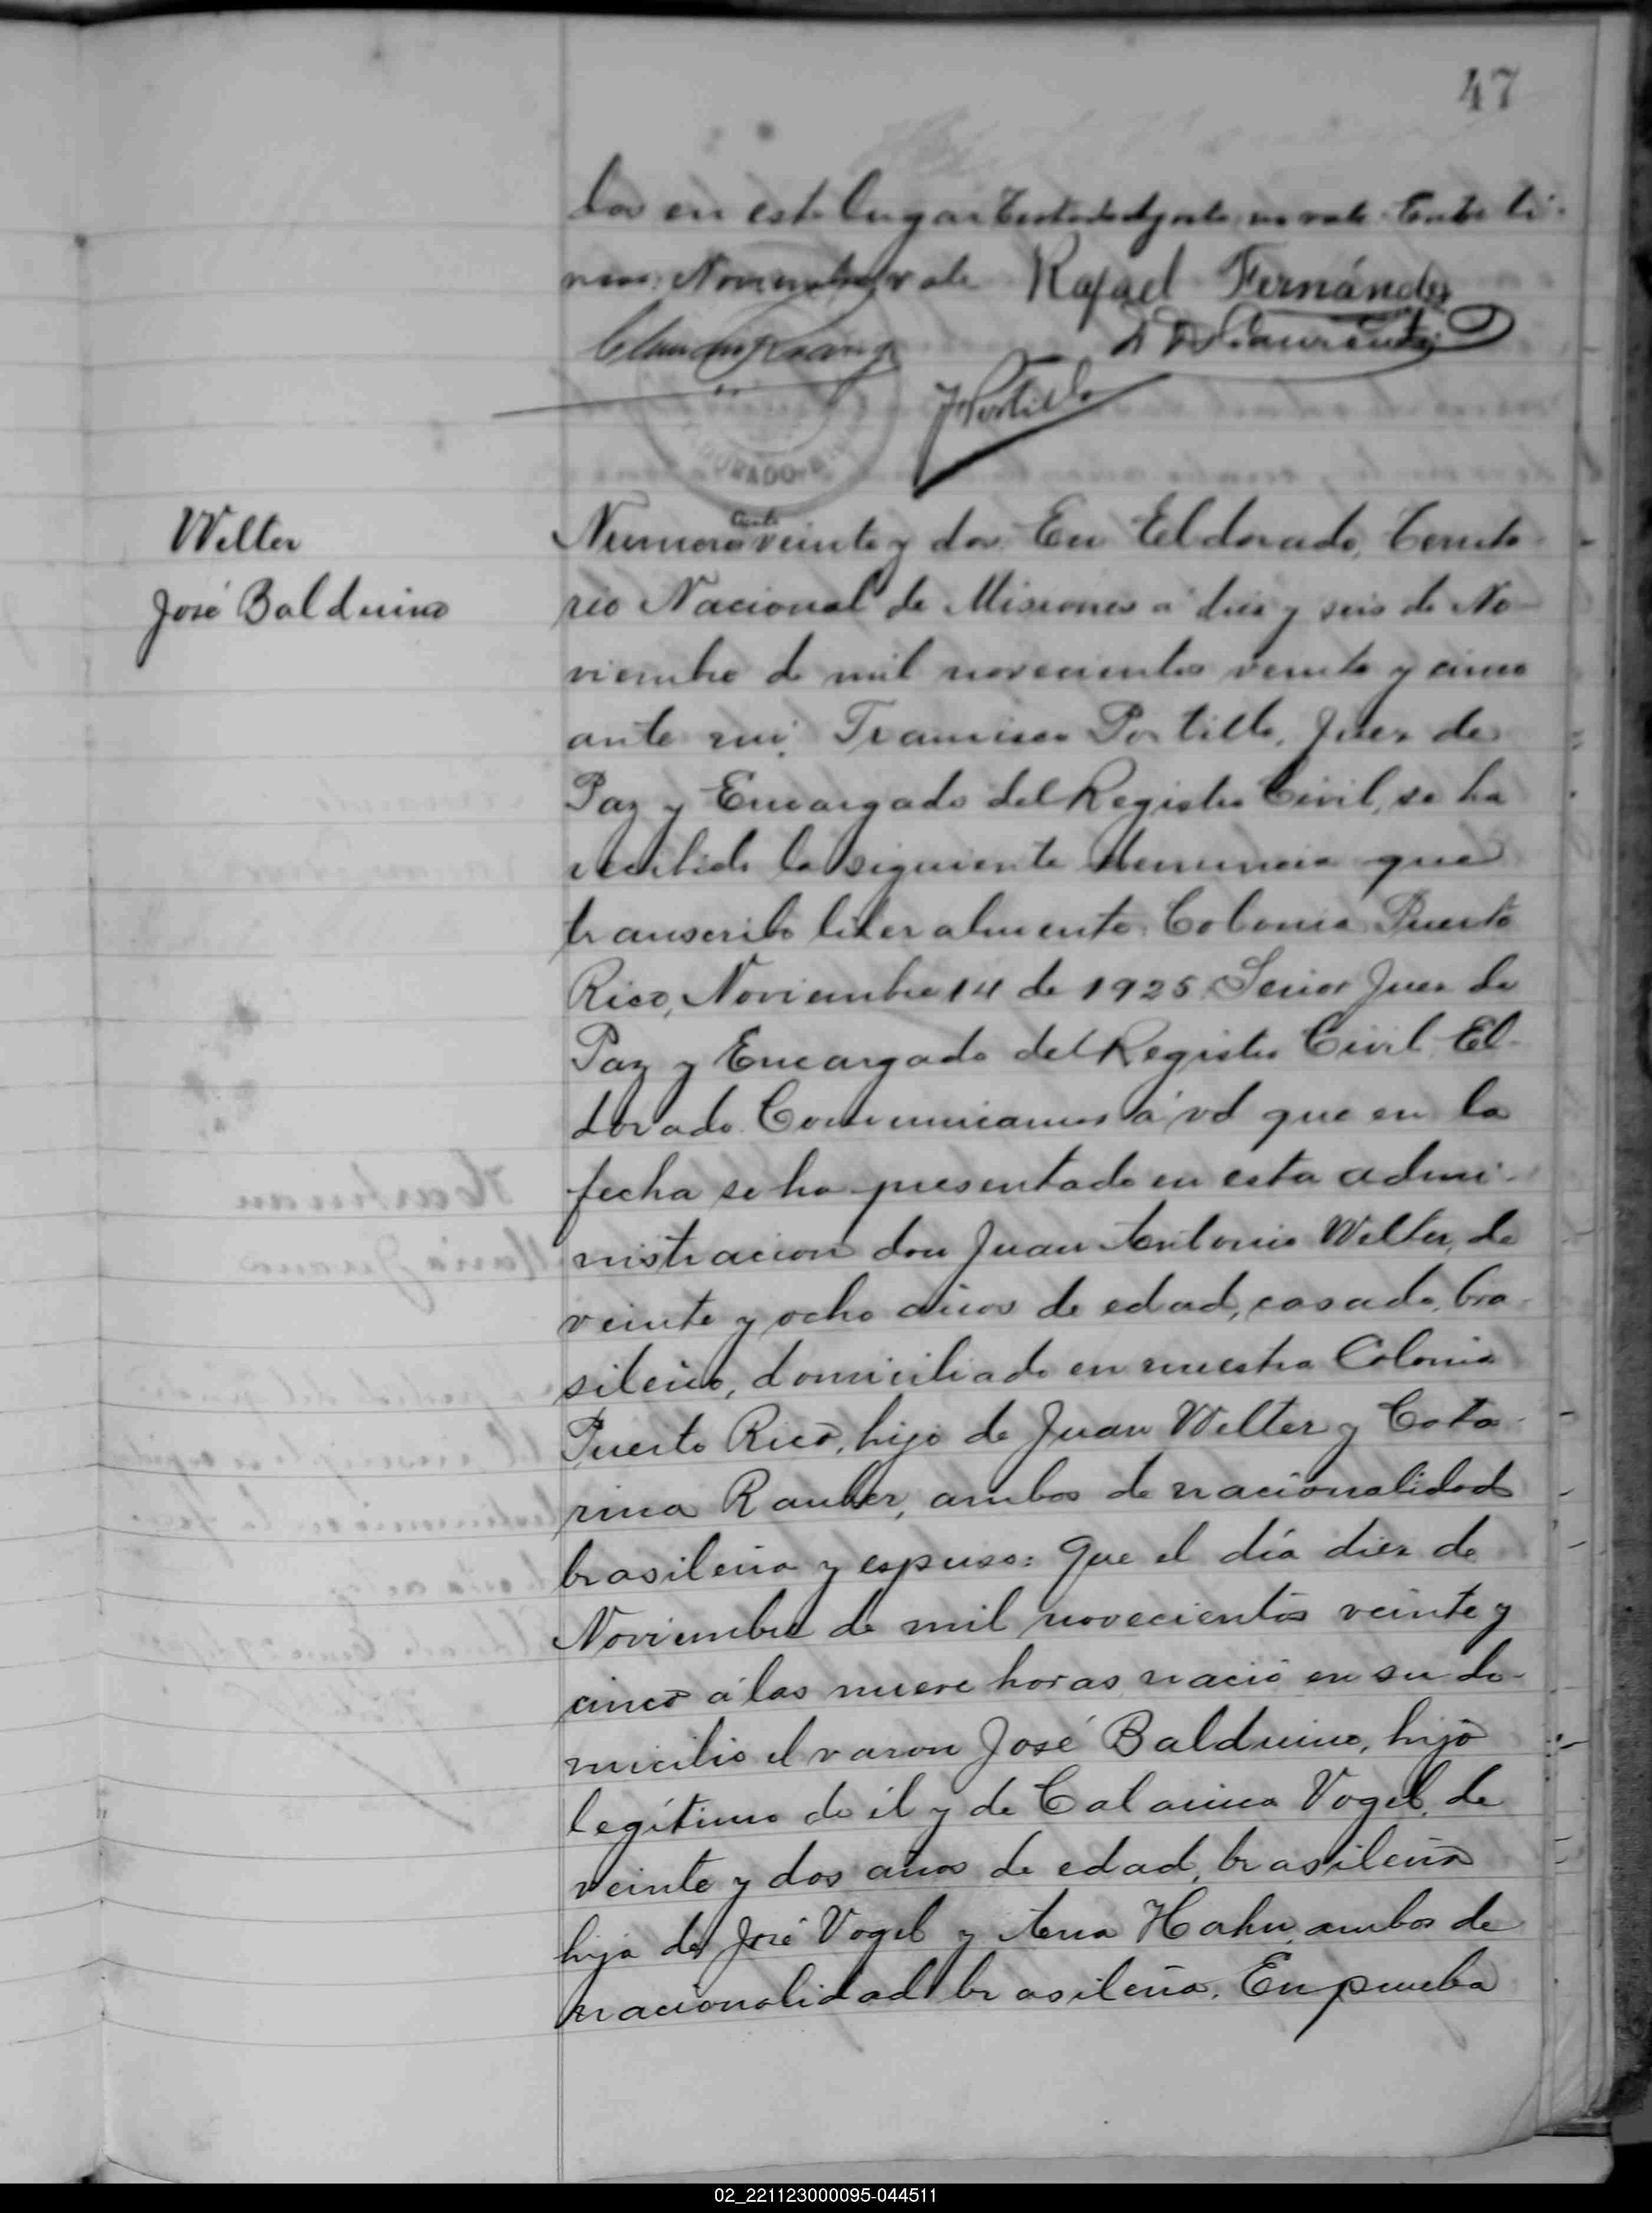 47
dos en este lugar Testado Agosto no vale Entre li-
neas: Noviembre vale Rafael Fernández
JPortillo
DORADO
Welter
José Balduino
ciento
Numero veinte y dos. En Eldorado, Territo-
rio Nacional de Misiones a diez y seis de No-
viembre de mil novecientos veinte y cinco
ante mi, Francisco Portillo, Juez de
Paz y Encargado del Registro Civil, se ha
recibido la siguiente denuncia que
transcribo literalmente: Colonia Puerto
Rico, Noviembre 14 de 1925. Senor Juez de
Paz y Encargado del Registro Civil. El-
dorado. Comunicamos á vd que en la
fecha se ha presentado en esta admi-
nistracion don Juan Antonio Welter, de
veinte y ocho años de edad, casado, bra-
sileño, domiciliado en nuestra Colonia
Puerto Rico, hijo de Juan Welter y Cata-
rina Rauber, ambos de nacionalidad
brasileña y expuso: Que el día diez de
Noviembre de mil novecientos veinte y
cinco á las nueve horas nació en su do-
micilio el varon José Balduino, hijo
legítimo de él y de Catarina Vogel, de
veinte y dos años de edad, brasileña
hija de José Vogel y Ana Hahn, ambos de
nacionalidad brasileña. En prueba
02_221123000095-044511